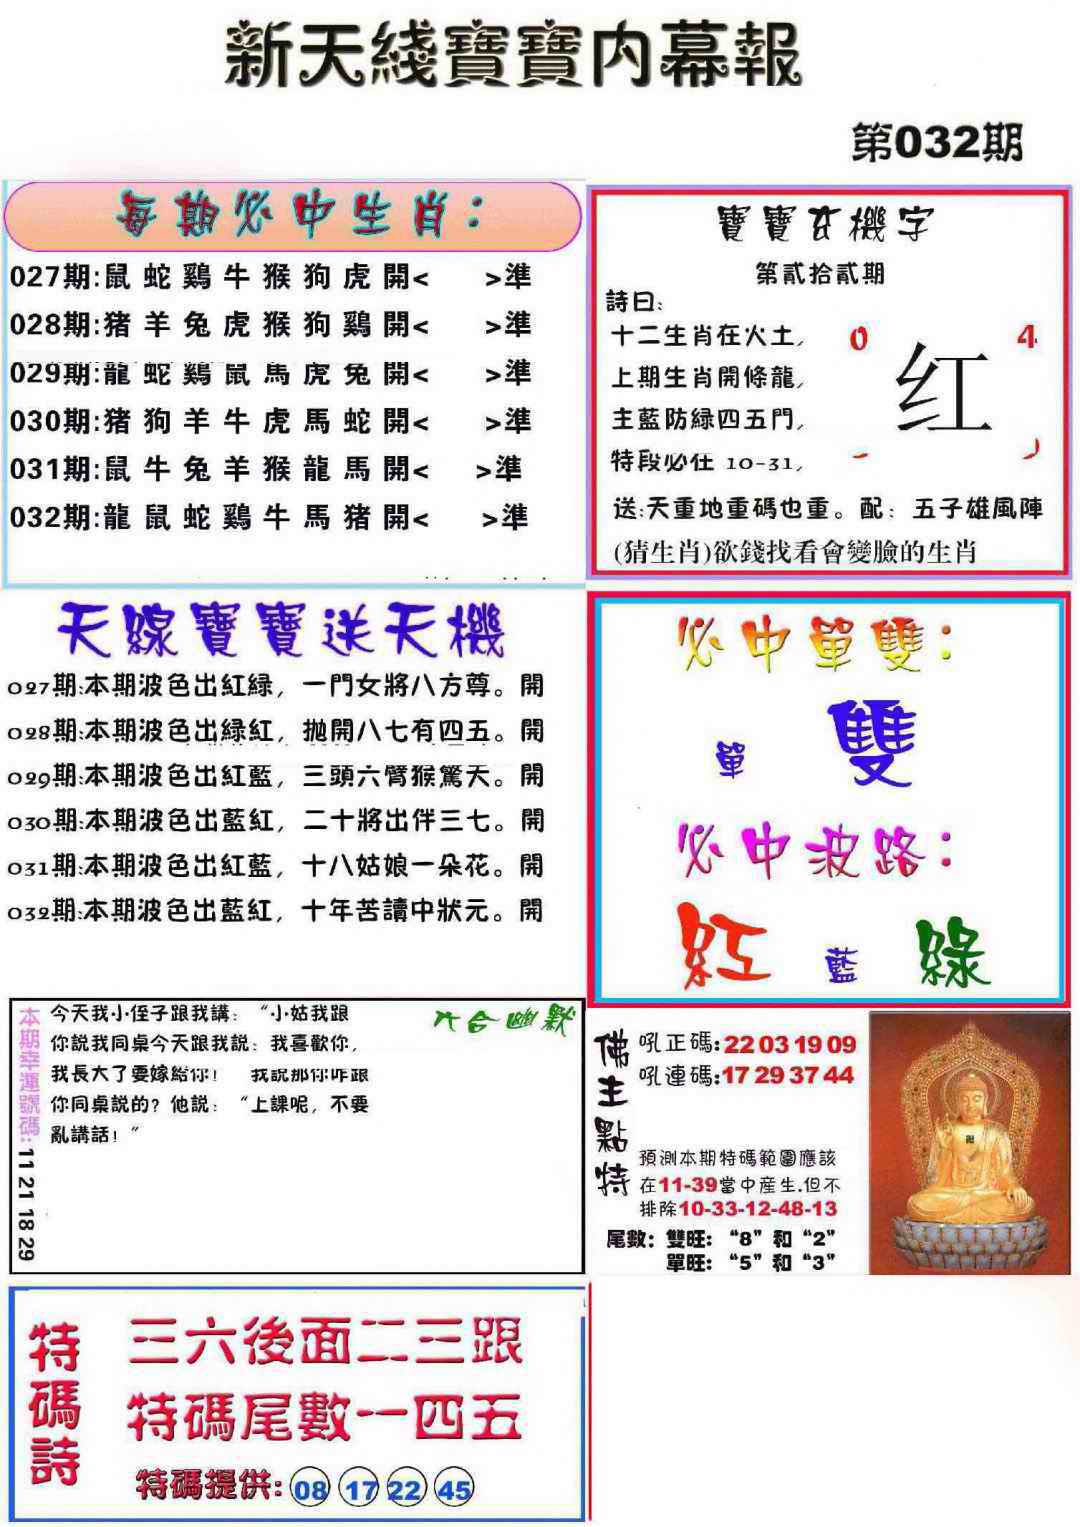 新天綫寶寶内幕報
第032期
每期必中生肖：
027期:鼠蛇鷄牛猴狗虎開<　>準
028期:猪羊兔虎猴狗鷄開<　>準
029期:龍蛇鷄鼠馬虎兔開<　>準
030期:猪狗羊牛虎馬蛇開<　>準
031期:鼠牛兔羊猴龍馬開<　>準
032期:龍鼠蛇鷄牛馬猪開<　>準
寶寶玄機字
第貳拾貳期
詩曰:
十二生肖在火土,
上期生肖開條龍,
主藍防緑四五門,
特段必在 10-31,
0 红 4
送:天重地重碼也重。配：五子雄風陣
(猜生肖)欲錢找看會變臉的生肖
天線寶寶送天機
027期:本期波色出紅緑，一門女將八方尊。開
028期:本期波色出緑紅，抛開八七有四五。開
029期:本期波色出紅藍，三頭六臂猴驚天。開
030期:本期波色出藍紅，二十將出伴三七。開
031期:本期波色出紅藍，十八姑娘一朵花。開
032期:本期波色出藍紅，十年苦讀中狀元。開
必中單雙：
單 雙
必中波路：
紅 藍 綠
六合幽默
本期幸運號碼: 11 21 18 29
今天我小侄子跟我講：“小姑我跟
你說我同桌今天跟我說：我喜歡你，
我長大了要嫁給你！ 我説那你咋跟
你同桌説的？他説：“上課呢，不要
亂講話！”
佛主點特
吼正碼:22 03 19 09
吼連碼:17 29 37 44
預測本期特碼範圍應該
在11-39當中産生.但不
排除10-33-12-48-13
尾數：雙旺：“8”和“2”
單旺：“5”和“3”
特碼詩
三六後面二三跟
特碼尾數一四五
特碼提供: 08 17 22 45